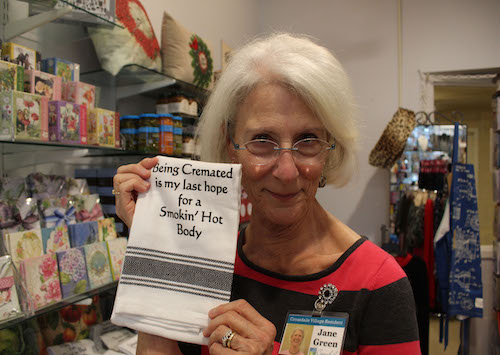 Being Cremated
is my last hope
for a
Smokin' Hot
Body
Jane
Green